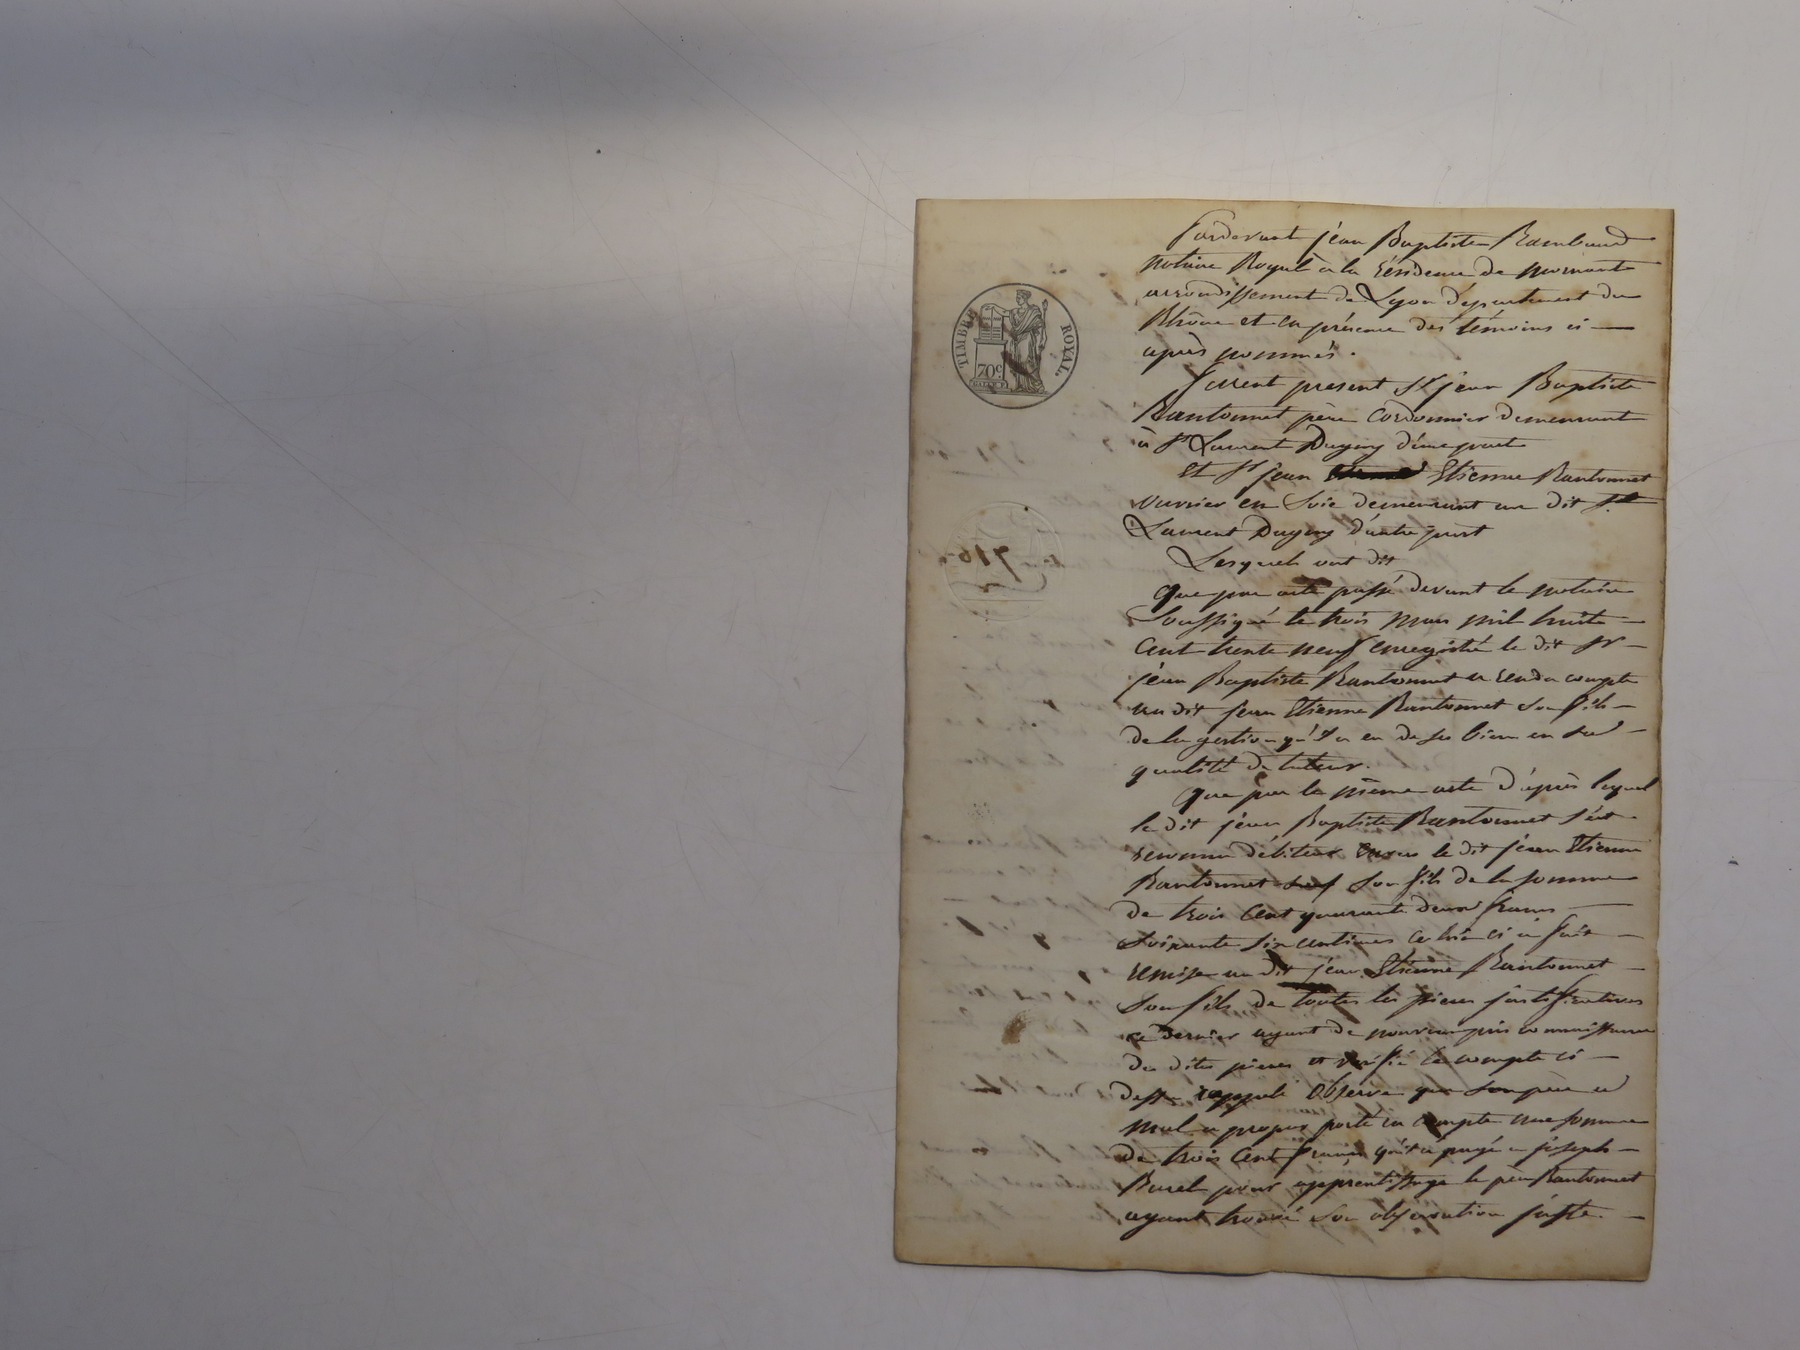 TIMBRE ROYAL
70c
Pardevant jean Baptiste Rambaud
notaire Royal à la résidence de mornant
arrondissement de Lyon département du
Rhône et en présence des témoins ci —
après nommés.
furent present Sr jean Baptiste
Bantonnet père Cordonnier demeurant
à St Laurent Dagny d'une part
et Sr jean Etienne Bantonnet
ouvrier en soie demeurant au dit St
Laurent Dagny d'autre part
Lesquels ont dit
que par acte passé devant le notaire
Soussigné le trois mars mil huit —
Cent trente neuf enregistré le dit Sr —
jean Baptiste Bantonnet a rendu compte
au dit jean Etienne Bantonnet son fils —
de la gestion qu'il a eu de ses biens en sa —
qualité de tuteur.
Que par le même acte d'après lequel
le dit jean Baptiste Bantonnet s'est
reconnu débiteur envers le dit jean Etienne
Bantonnet son fils de la somme
de trois Cent quarante deux francs —
soixante six centimes celui ci a fait —
remise au dit jean Etienne Bantonnet —
son fils de toutes les pièces justificatives
ce dernier ayant de nouveau pris connaissance
des dites pièces et vérifié le compte ci —
dessus rappelé observe que son père a
mal a propos porté en compte une somme
de trois Cent francs qu'il a payé a joseph —
Burel pour apprentissage le père Bantonnet
ayant trouvé son observation juste. —
716